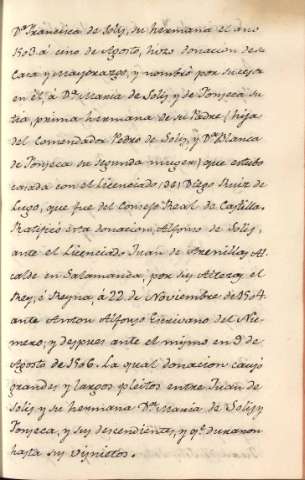 Dª Francisca de Solis, su hermana el año
1503 á cinco de Agosto, hizo donacion de su
Casa y Mayorazgo, y nombró por sucesora
en él, á Dª Maria de Solis y de Fonseca su
tia, prima hermana de su Padre (hija
del Comendador Pedro de Solis, y Dª Blanca
de Fonseca su segunda muger) que estubo
casada con el Licenciado, Diego Ruiz de
Lugo, que fue del Consejo Real de Castilla.
Ratificó esta donacion, Alfonso de Solis,
ante el Licenciado Juan de Arenillas Al-
calde en Salamanca, por sus Altezas, el
Rey, ó Reyna, á 22 de Noviembre de 1504
ante Anton Alfonso Escrivano del Nu-
mero; y despues ante el mismo en 9 de
Agosto de 1506. La qual donacion causó
grandes, y largos pleitos entre Juan de
Solis y su hermana Dª Maria, de Solis y
Fonseca, y sus descendientes, y qº duraron
hasta sus visnietos.